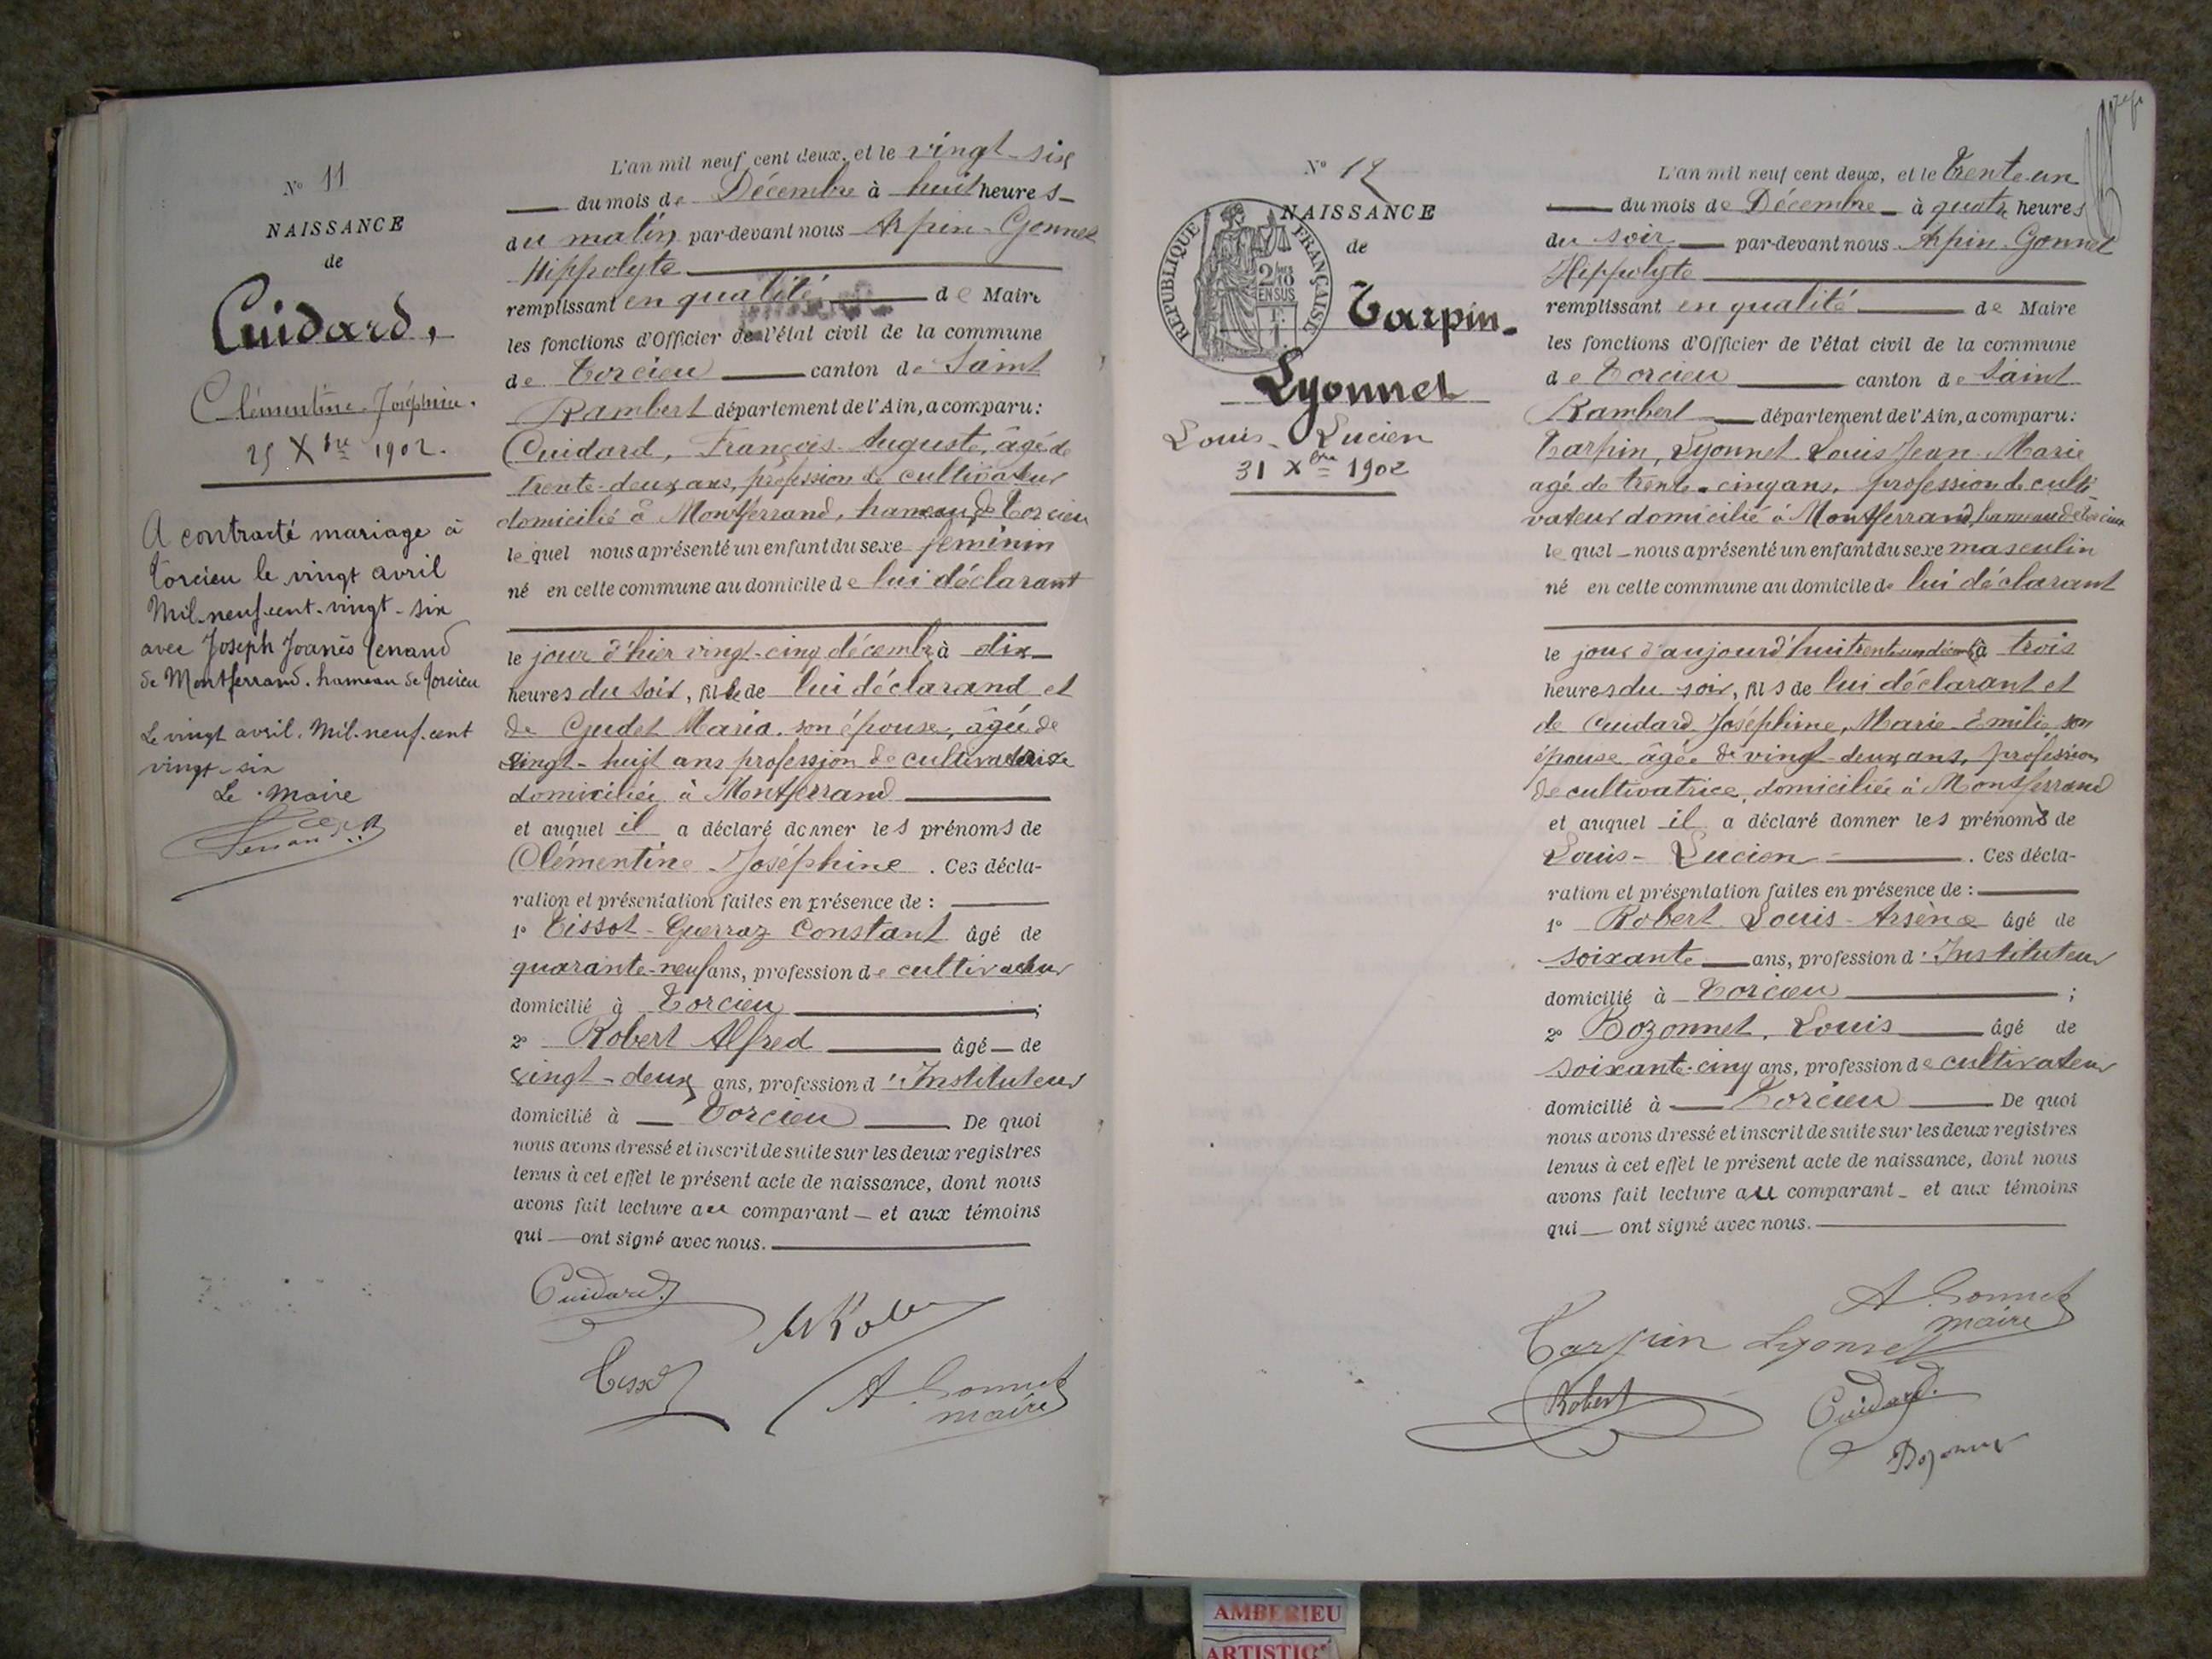 N° 11
NAISSANCE
de
Cuidard,
Clémentine Joséphine.
25 Xbre 1902.
A contracté mariage à
Torcieu le vingt avril
Mil-neuf-cent-vingt-six
avec Joseph Joanès Tenand
de Montferrand. hameau de Torcieu
Le vingt avril. Mil-neuf-cent
vingt-six
Le Maire
L'an mil neuf cent deux, et le vingt-six
du mois de Décembre à huit heures
du matin par-devant nous Arpin-Gonnet
Hippolyte
remplissant en qualité de Maire
les fonctions d'Officier de l'état civil de la commune
de Torcieu canton de Saint
Rambert département de l'Ain, a comparu:
Cuidard, François-Auguste, âgé de
trente-deux ans, profession de cultivateur
domicilié à Montferrand, hameau de Torcieu
lequel nous a présenté un enfant du sexe feminin
né en cette commune au domicile de lui déclarant
le jour d'hier vingt-cinq décembre à dix
heures du soir, fille de lui déclarand et
de Gudet Maria son épouse, âgée de
vingt-huit ans profession de cultivatrice
domiciliée à Montferrand
et auquel il a déclaré donner les prénoms de
Clémentine-Joséphine. Ces décla-
ration et présentation faites en présence de :
1° Tissot-Guerraz Constant âgé de
quarante-neuf ans, profession de cultivateur
domicilié à Torcieu ;
2° Robert Alfred âgé de
vingt-deux ans, profession d'Instituteur
domicilié à Torcieu De quoi
nous avons dressé et inscrit de suite sur les deux registres
tenus à cet effet le présent acte de naissance, dont nous
avons fait lecture au comparant et aux témoins
qui ont signé avec nous.
Cuidard
A. Gonnet
maire
N° 12
NAISSANCE
de
RÉPUBLIQUE FRANÇAISE
2/10 EN SUS
Tarpin-
Lyonnet
Louis-Lucien
31 Xbre 1902
L'an mil neuf cent deux, et le trente-un
du mois de Décembre à quatre heures
du soir par-devant nous Arpin-Gonnet
Hippolyte
remplissant en qualité de Maire
les fonctions d'Officier de l'état civil de la commune
de Torcieu canton de Saint
Rambert département de l'Ain, a comparu:
Tarpin, Lyonnet Louis Jean-Marie
agé de trente-cinq ans, profession de culti
vateur domicilié à Montferrand, hameau de Torcieu
lequel nous a présenté un enfant du sexe masculin
né en cette commune au domicile de lui déclarant
le jour d'aujourd'hui trente un décembre à trois
heures du soir, fils de lui déclarant et
de Cuidard Joséphine, Marie-Emilie, son
épouse âgée de vingt-deux ans, profession
de cultivatrice, domiciliée à Montferrand
et auquel il a déclaré donner les prénoms de
Louis-Lucien. Ces décla-
ration et présentation faites en présence de :
1° Robert Louis-Arsène âgé de
soixante ans, profession d'Instituteur
domicilié à Torcieu ;
2° Bozonnet, Louis âgé de
soixante-cinq ans, profession de cultivateur
domicilié à Torcieu De quoi
nous avons dressé et inscrit de suite sur les deux registres
tenus à cet effet le présent acte de naissance, dont nous
avons fait lecture au comparant et aux témoins
qui ont signé avec nous.
A. Gonnet
maire
Tarpin Lyonnet
Robert Cuidard.
AMBERIEU
ARTISTIC